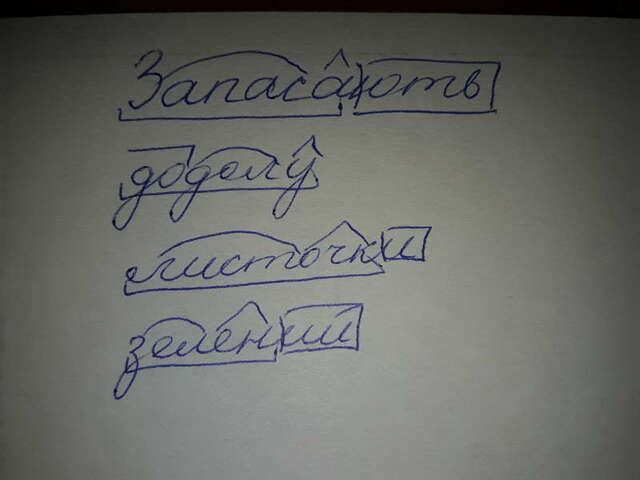 Запасають
додолу
листочки
зелений